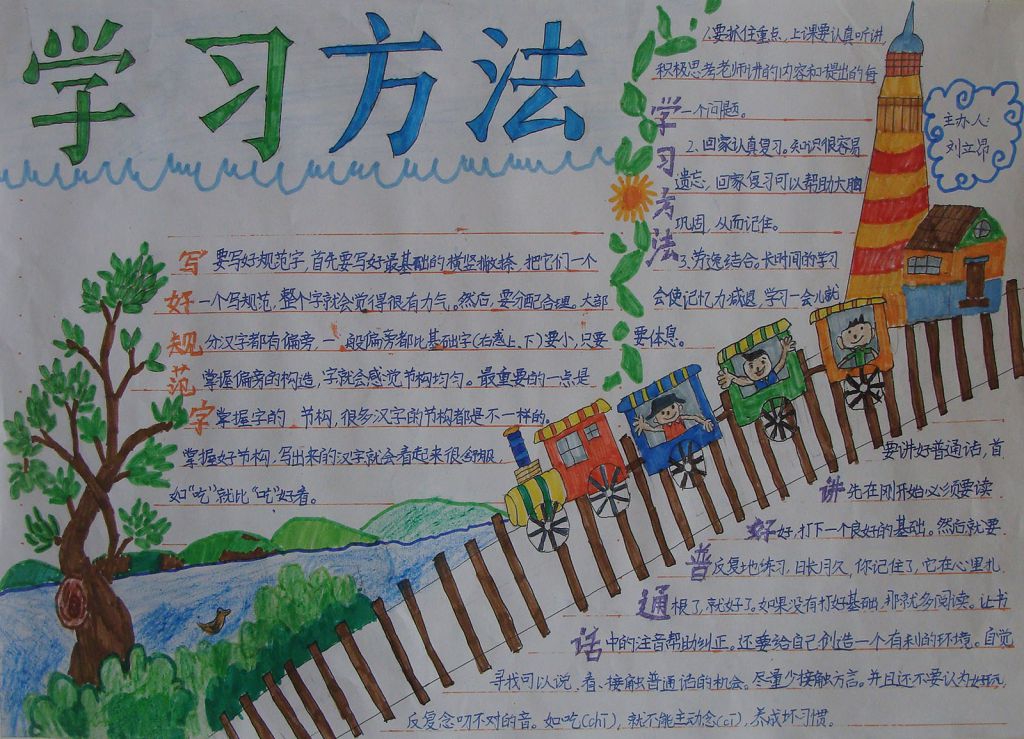 学习方法
主办人:
刘立昂
学习方法
1.要抓住重点,上课要认真听讲
积极思考老师讲的内容和提出的每
一个问题。
2.回家认真复习。知识很容易
遗忘,回家复习可以帮助大脑
巩固,从而记住。
3.劳逸结合。长时间的学习
会使记忆力减退,学习一会儿就
要体息。
写好规范字
要写好规范字,首先要写好最基础的横竖撇捺,把它们一个
一个写规范,整个字就会觉得很有力气。然后,要分配合理。大部
分汉字都有偏旁,一般偏旁都比基础字(右惑上、下)要小,只要
掌握偏旁的构造,字就会感觉节构均匀。最重要的一点是
掌握字的 节构,很多汉字的节构都是不一样的。
掌握好节构,写出来的汉字就会看起来很舒服,
如"吃"就比"吃"好看。
讲好普通话
要讲好普通话,首
先在刚开始必须要读
好,打下一个良好的基础。然后就要
反复地练习,日长月久,你记住了,它在心里扎
根了,就好了。如果没有打好基础,那就多阅读。让书
中的注音帮助纠正。还要给自己创造一个有利的环境。自觉
寻找可以说、看、接触普通话的机会。尽量少接触方言。并且还不要认为好玩,
反复念叨不对的音。如吃(chī),就不能主动念(cī),养成坏习惯。